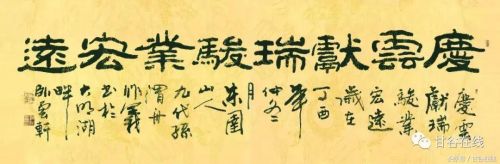 慶雲獻瑞駿業宏遠
慶雲
獻瑞
駿業
宏遠
歲在
丁酉
年
仲冬
月
東園
山人
九代孫
作義
書於
大明湖
畔
卧雲軒
甘谷在线